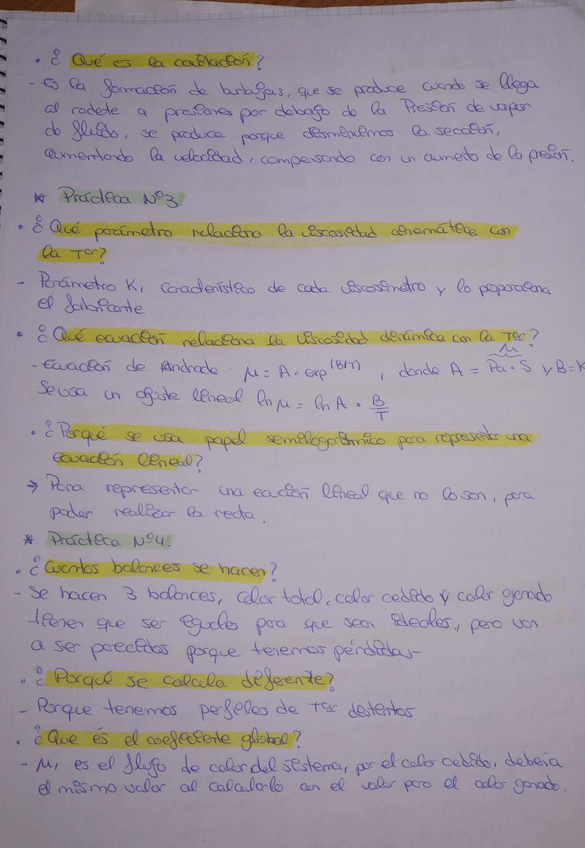 · ¿ Qué es la cavitación?
- Es la formación de burbujas, que se produce cuando se llega
al rodete a presiones por debajo de la Presión de vapor
do fluido, se produce porque disminuimos la sección,
aumentando la velocidad, compensando con un aumento de la presión.
* Práctica Nº3
· ¿Qué parámetro relaciona la viscosidad cinemática con
la Tª?
- Parámetro K, característico de cada viscosímetro y lo proporciona
el fabricante
· ¿Qué ecuación relaciona la viscosidad dinámica con la Tª?
- Ecuación de Andrade: μ = A · exp (B/T) , donde A = Pa · S y B = K
Se usa un ajuste lineal ln μ = ln A · B/T
· ¿Porqué se usa papel semilogarítmico para representar una
ecuación lineal?
→ Para representar una ecuación lineal que no lo son, para
poder realizar la recta.
* Práctica Nº4.
· ¿Cuantos balances se hacen?
- Se hacen 3 balances, calor total, calor cedido y calor ganado
tienen que ser iguales para que sean ideales, pero van
a ser parecidos porque tenemos pérdidas-
· ¿Porqué se calcula diferente?
- Porque tenemos perfiles de Tª distintos
· ¿Que és el coeficiente global?
- μ, es el flujo de calor del sistema, por el calor cedido, debería
el mismo valor al calcularlo con el valor para el calor ganado.